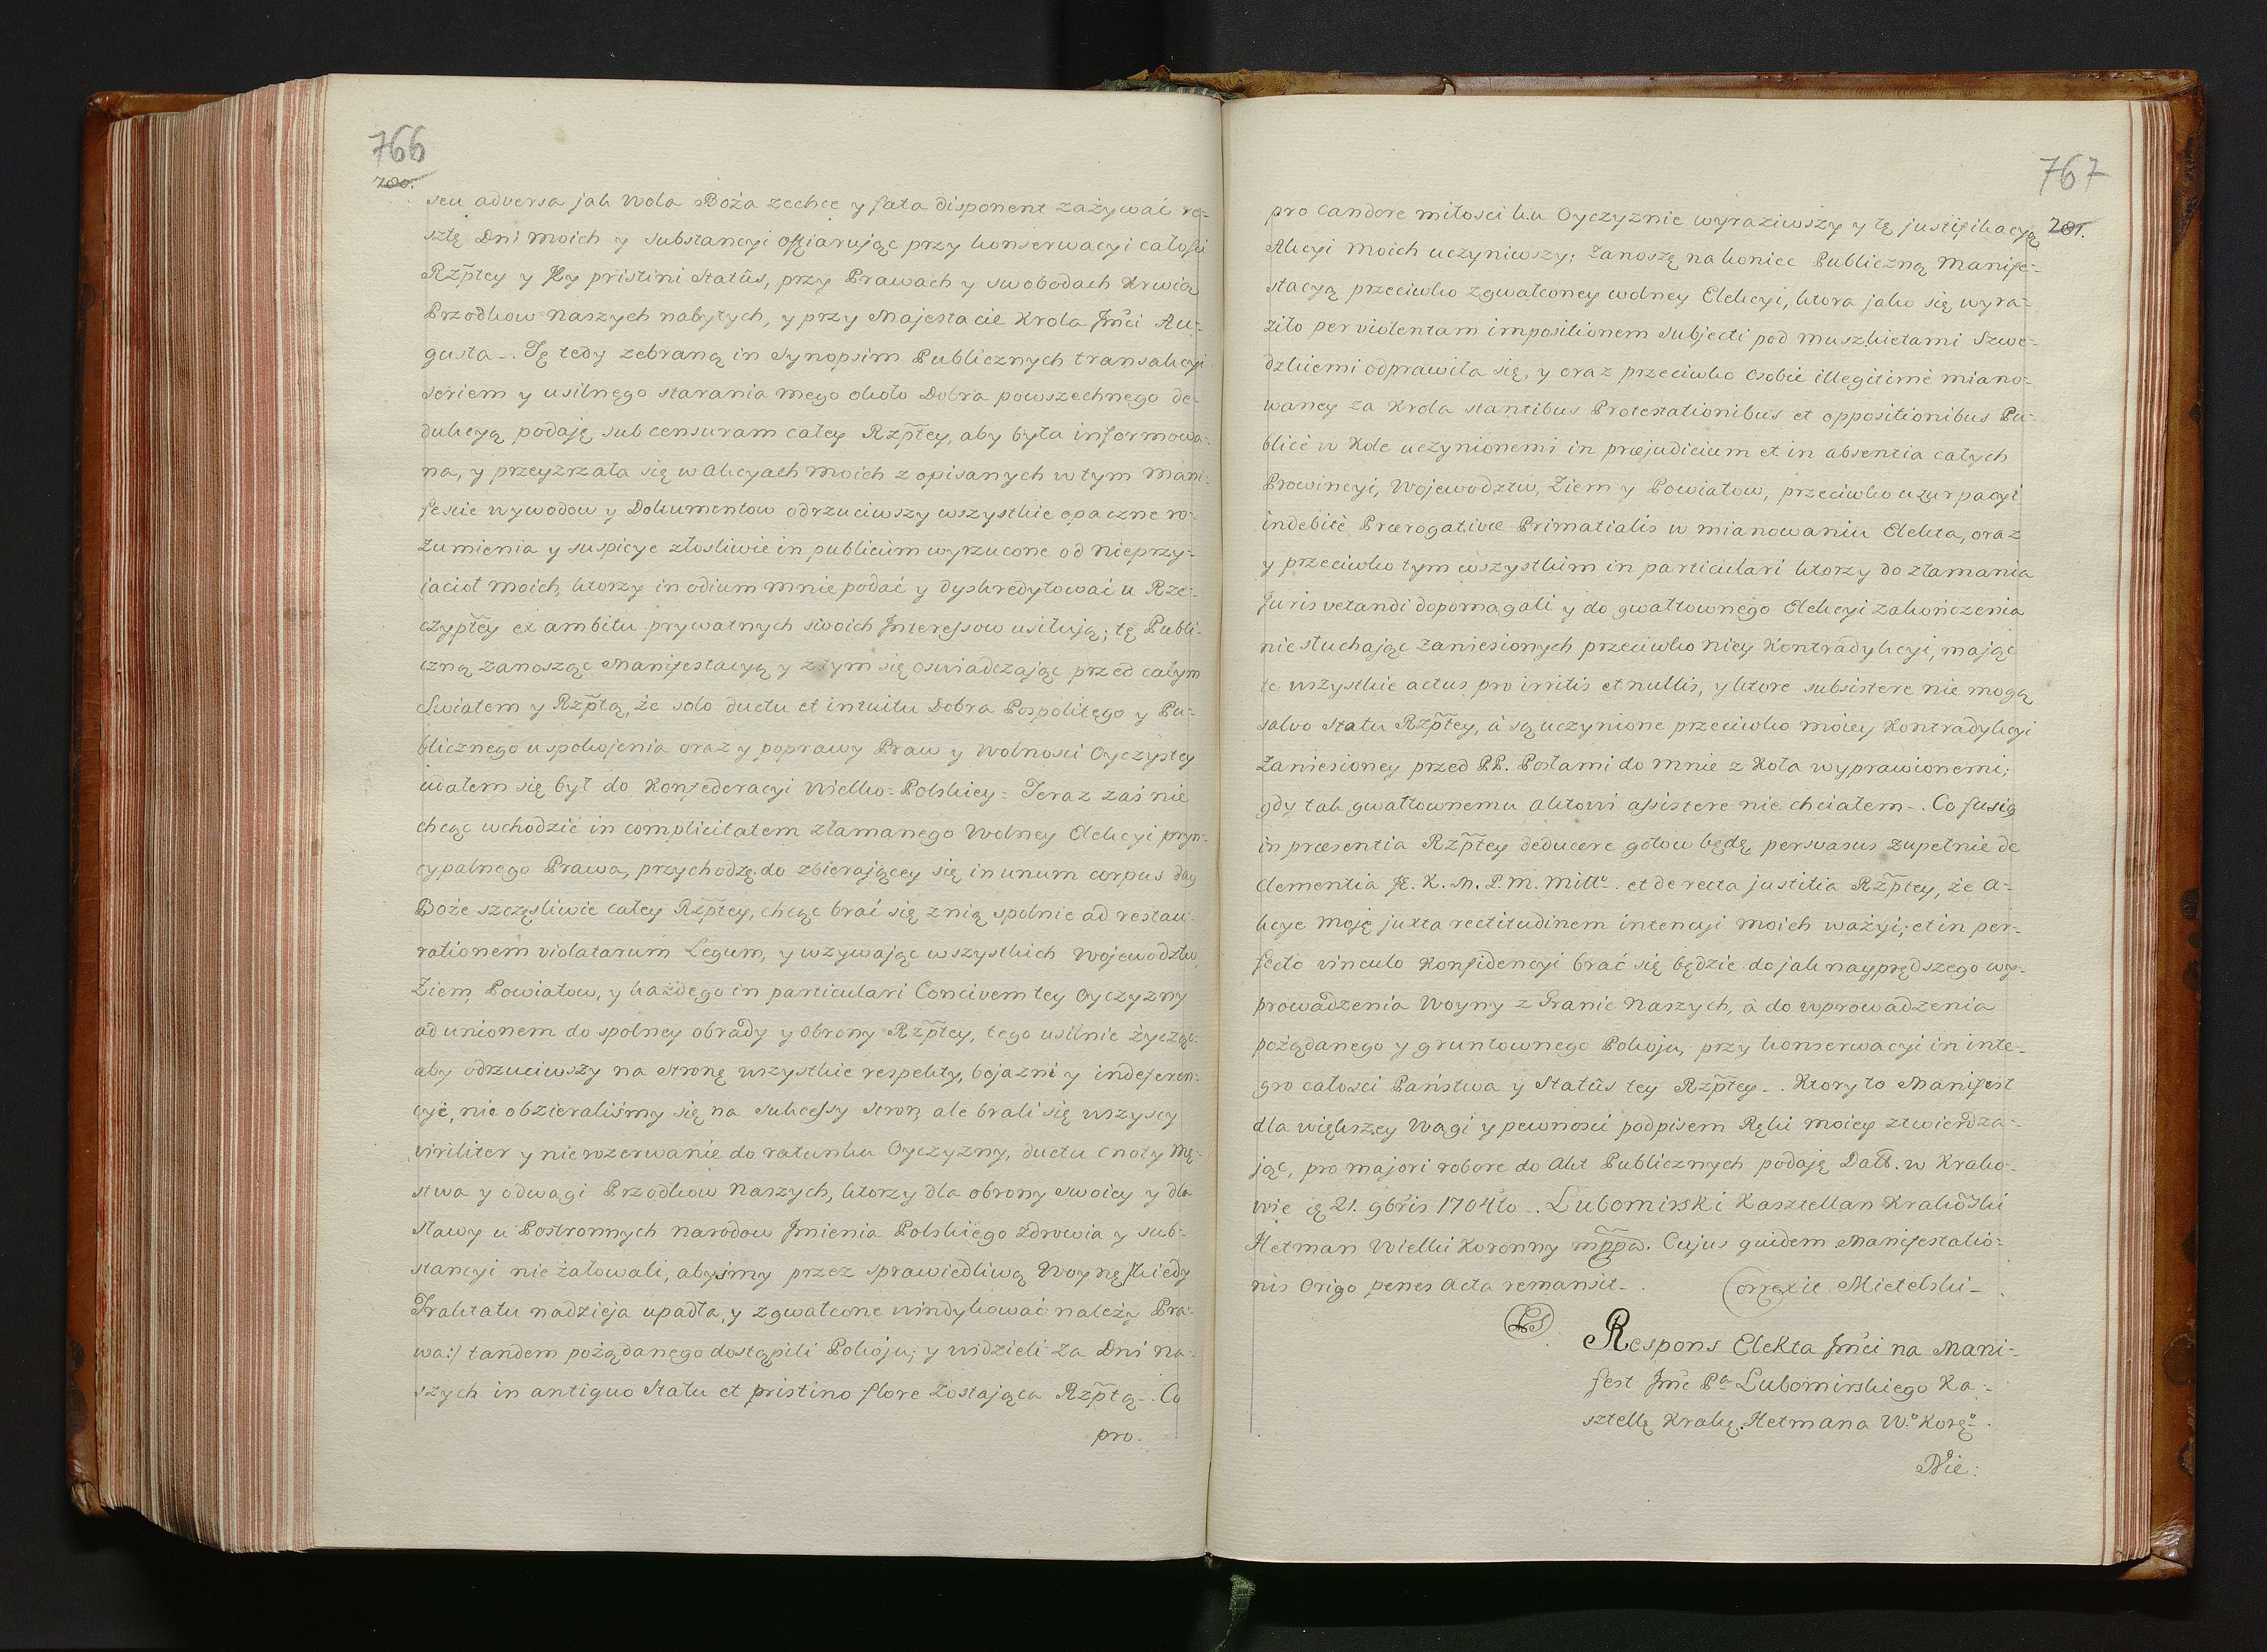 766
700.
seu adversa jak Wola Boża zechce y fata disponent zażywać re-
sztę Dni moich y substancyi offiarując przy konserwacyi całości
Rzp̃tey y Jey pristini Statûs, przy Prawach y swobodach Krwią
Przodkow naszych nabytych, y przy Majestacie Krola Jm̃ci Au-
gusta-. Tę tedy zebraną in Synopsim Publicznych transakcyi
seriem y usilnego starania mego około Dobra powszechnego de-
dukcyą podaję sub censuram całey Rzp̃tey, aby była informowa-
na, y przeyżrzała się w akcyach moich z opisanych w tym Mani-
feście wywodow y Dokumentow odrzuciwszy wszystkie opaczne ro-
zumienia y suspicye złosliwie in publicum wyrzucone od nieprzy-
jacioł moich, ktorzy in odium mnie podać y dyskredytować u Rze-
czyp̃tey ex ambitu prywatnych swoich Interessow usiłują; tę Publi-
czną zanosząc Manifestacyą y z tym się oswiadczając przed całym
Swiatem y Rzp̃tą, że solo ductu et intuitu Dobra Pospolitego y Pu-
blicznego uspokojenia oraz y poprawy Praw y Wolnosci Oyczystey
udałem się był do Konfederacyi Wielko-Polskiey- Teraz zaś nie
chcąc wchodzić in complicitatem złamanego Wolney Elekcyi pryn-
cypalnego Prawa, przychodzę do zbierającey się in unum corpus day
Boże szczęsliwie całey Rzp̃tey, chcąc brać się z nią spolnie ad restau-
rationem violatarum Legum, y wzywając wszystkich Wojewodztw,
Ziem, Powiatow, y każdego in particulari Concivem tey Oyczyzny
ad unionem do spolney obrady y obrony Rzp̃tey, tego usilnie życząc:
aby odrzuciwszy na stronę wszystkie respekty, bojazni y indeferen-
cye, nie obzieraliśmy się na sukcessy stron, ale brali się wszyscy
viriliter y nierozerwanie do ratunku Oyczyzny, ductu cnoty Mę-
stwa y odwagi Przodkow naszych, ktorzy dla obrony swoiey y dla
sławy u Postronnych narodow Jmienia Polskiego zdrowia y sub-
stancyi nie żałowali, abysmy przez sprawiedliwą Woynę /:kiedy
Traktatu nadzieja upadła, y zgwałcone vindykować należy Pra-
wa:/ tandem pożądanego dostąpili Pokoju; y widzieli za Dni na-
szych in antiquo Statu et pristino flore zostająca Rzp̃tą-. Co
pro-
767
701.
pro candore miłosci ku Oyczyznie wyraziwszy y tę justifikacyą
Akcyi moich uczyniwszy; zanoszę na koniec Publiczną Manife-
stacyą przeciwko zgwałconey wolney Elekcyi, ktora jako się wyra-
ziło per violentam impositionem subjecti pod muszkietami Szwe-
dzkiemi odprawiła się, y oraz przeciwko osobie illegitimè miano-
waney za Krola stantibus Protestationibus et oppositionibus Pu-
blicè w Kole uczynionemi in præjudicium et in absentia całych
Prowincyi, Wojewodztw, Ziem y Powiatow, przeciwko uzurpacyi
indebitè Prærogativæ Primatialis w mianowaniu Elekta, oraz
y przeciwko tym wszystkim in particulari ktorzy do złamania
Juris vetandi dopomagali y do gwałtownego Elekcyi zakończenia
nie słuchając zaniesionych przeciwko niey Kontradykcyi, mając
te wszystkie actus pro irritis et nullis, y ktore subsistere nie mogą
salvo statu Rzp̃tey, à są uczynione przeciwko moiey Kontradykcyi
zaniesioney przed PP. Posłami do mnie z Koła wyprawionemi;
gdy tak gwałtownemu aktowi assistere nie chciałem-. Co fusiq
in præsentia Rzp̃tey deducere gotow będę, persuasus zupełnie de
clementia J. K. M. P. M. Mittº. et de recta justitia Rzp̃tey, że a-
kcye moję juxta rectitudinem intencyi moich ważyi; et in per-
fecto vinculo Konfidencyi brać się będzie do jak nayprędszego wy-
prowadzenia Woyny z Granic naszych, à do wprowadzenia
pożądanego y gruntownego Pokoju, przy konserwacyi in inte-
gro całosci Państwa y Statûs tey Rzp̃tey-. Ktory to Manifest
dla większey Wagi y pewnosci podpisem Ręki moiey ztwierdza-
jąc, pro majori robore do Akt Publicznych podaję Datt. w Krako-
wie 21. 9bris 1704to-. Lubomirski Kasztellan Krakõski
Hetman Wielki Koronny mppa. Cujus quidem Manifestatio-
nis Origo penes Acta remansit-. Correxit Mietelski-
LS
Respons Elekta Jm̃ci na Mani-
fest Jm̃c Pª Lubomirskiego Ka-
sztellę Krakę. Hetmana W.º Korę-.
Nie: